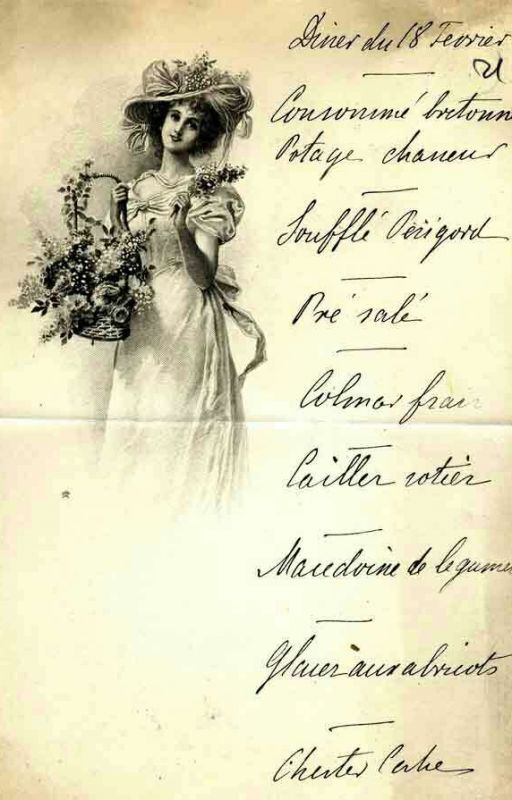 Diner du 18 Fevrier
Consommé bretonn
Potage chasseur
Soufflé Périgord
Pré salé
Colmar frais
Cailles roties
Macedoine de legumes
Glaces aux abricots
Chester